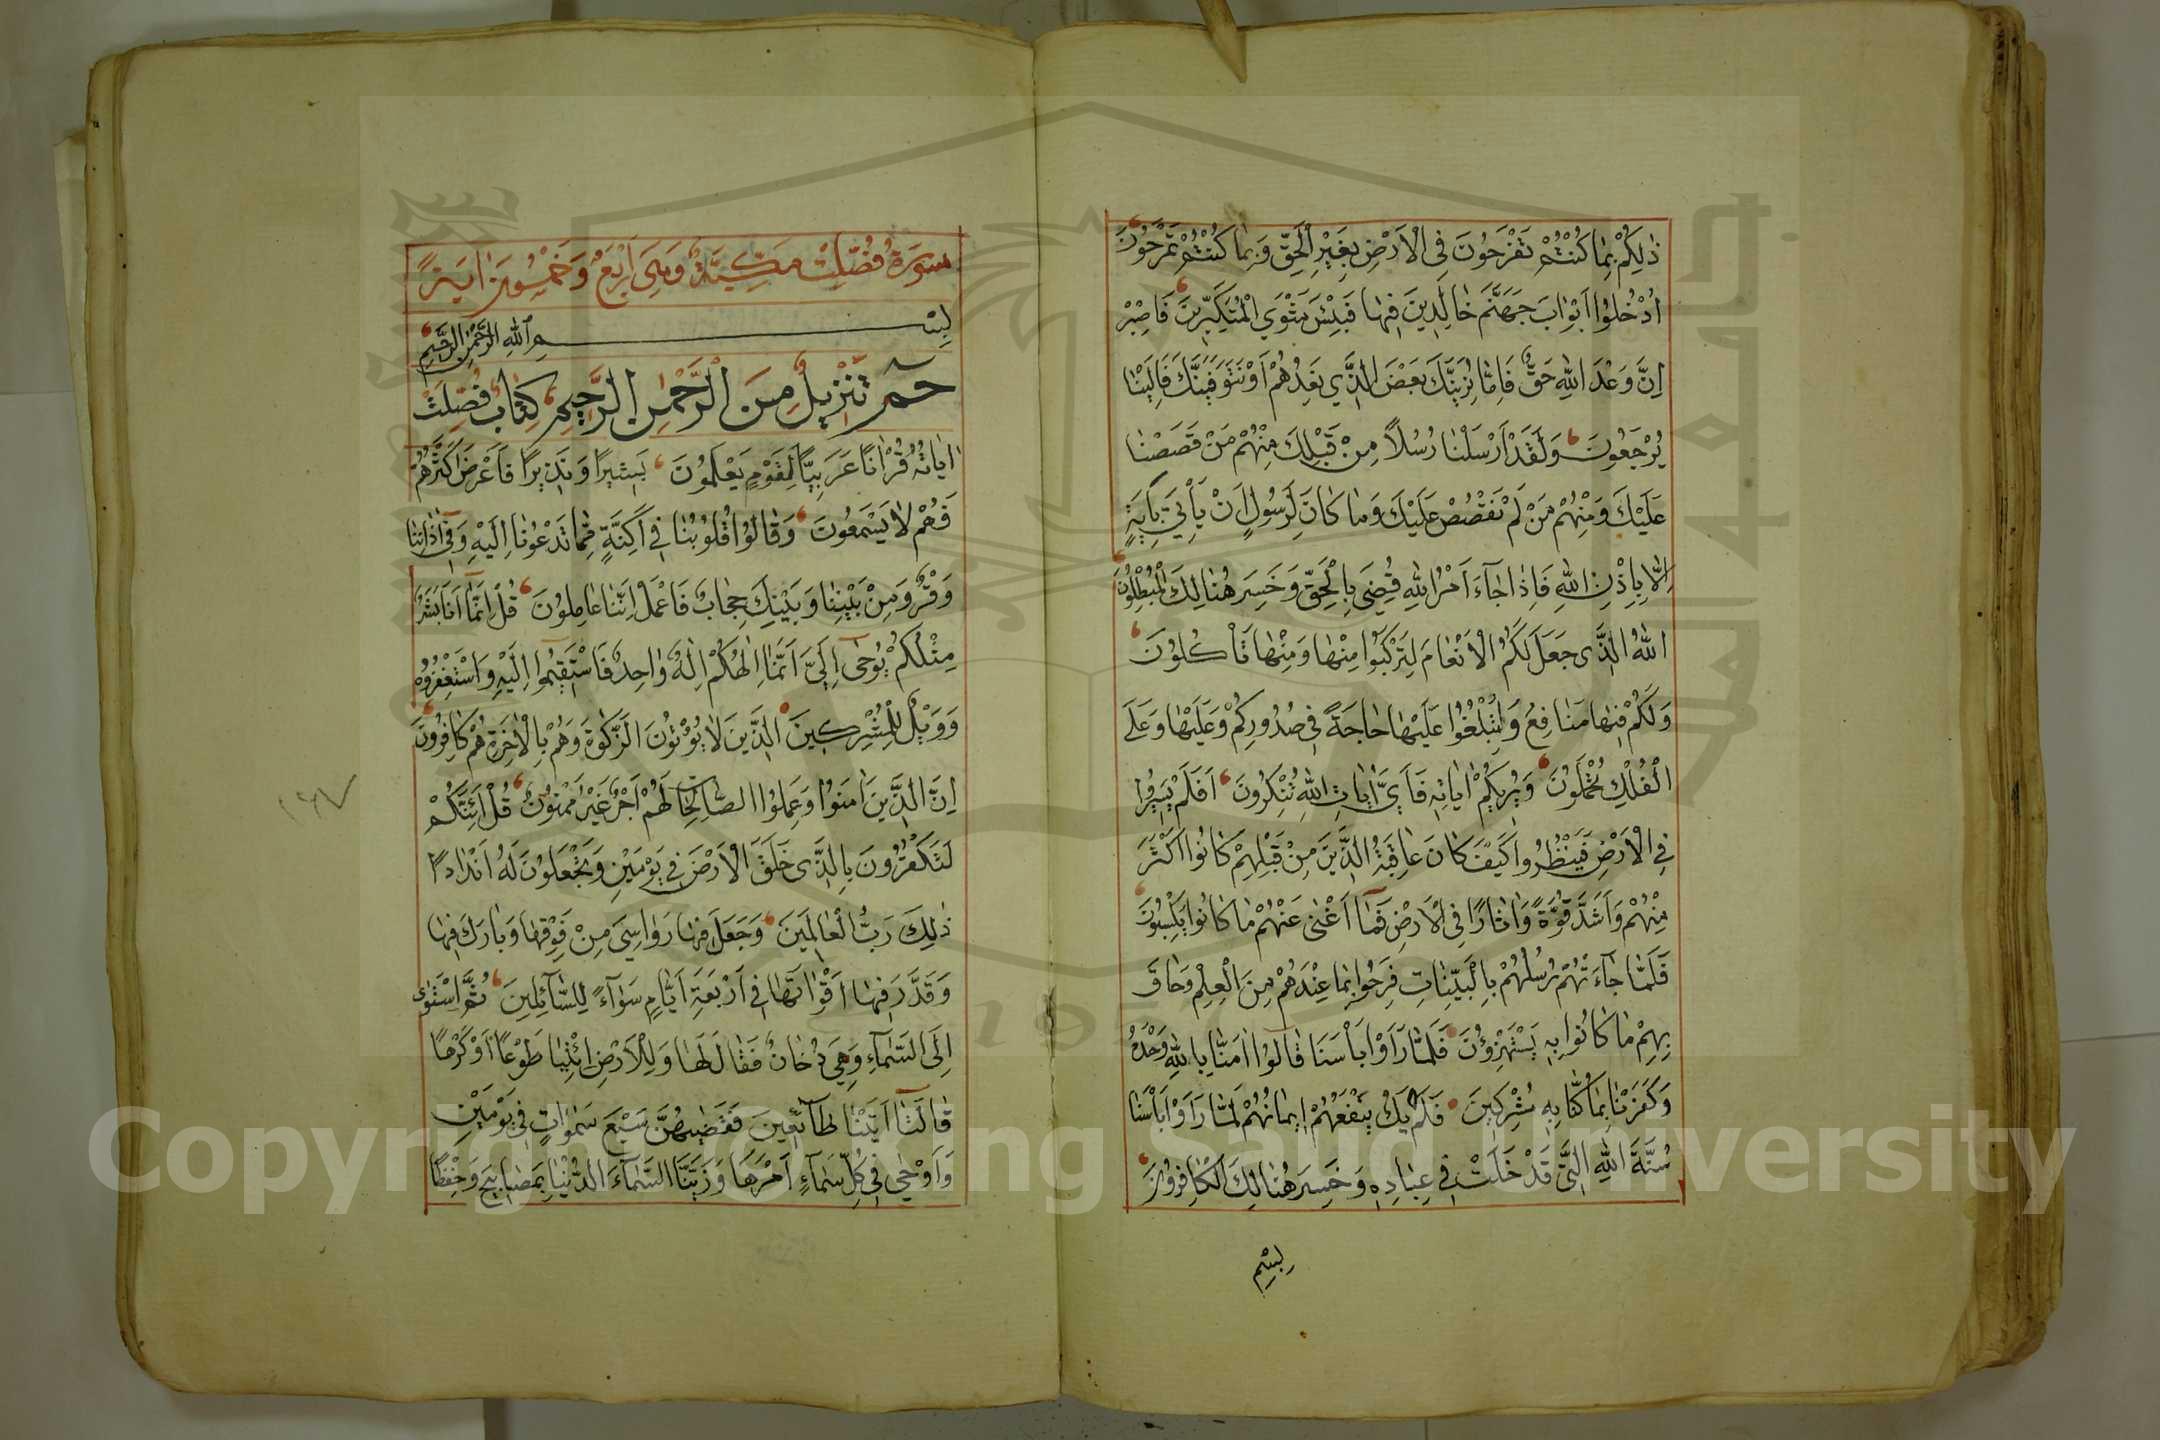 ذٰلِكُمْ بِمَا كُنْتُمْ تَفْرَحُونَ فِي الْاَرْضِ بِغَيْرِ الْحَقِّ وَبِمَا كُنْتُمْ تَمْرَحُونَ
اُدْخُلُوا اَبْوَابَ جَهَنَّمَ خَالِدِينَ فِيهَا فَبِئْسَ مَثْوَي الْمُتَكَبِّرِينَ فَاصْبِرْ
اِنَّ وَعْدَ اللّٰهِ حَقٌّ فَاِمَّا نُرِيَنَّكَ بَعْضَ الَّذِي نَعِدُهُمْ اَوْ نَتَوَفَّيَنَّكَ فَاِلَيْنَا
يُرْجَعُونَ وَلَقَدْ اَرْسَلْنَا رُسُلًا مِنْ قَبْلِكَ مِنْهُمْ مَنْ قَصَصْنَا
عَلَيْكَ وَمِنْهُمْ مَنْ لَمْ نَقْصُصْ عَلَيْكَ وَمَا كَانَ لِرَسُولٍ اَنْ يَأْتِيَ بِاٰيَةٍ
اِلَّا بِاِذْنِ اللّٰهِ فَاِذَا جَاءَ اَمْرُ اللّٰهِ قُضِيَ بِالْحَقِّ وَخَسِرَ هُنَالِكَ الْمُبْطِلُونَ
اَللّٰهُ الَّذِى جَعَلَ لَكُمُ الْاَنْعَامَ لِتَرْكَبُوا مِنْهَا وَمِنْهَا تَأْكُلُونَ
وَلَكُمْ فِيهَا مَنَافِعُ وَلِتَبْلُغُوا عَلَيْهَا حَاجَةً فِي صُدُورِكُمْ وَعَلَيْهَا وَعَلَى
الْفُلْكِ تُحْمَلُونَ وَيُرِيكُمْ اٰيَاتِهِ فَاَيَّ اٰيَاتِ اللّٰهِ تُنْكِرُونَ اَفَلَمْ يَسِيرُوا
فِي الْاَرْضِ فَيَنْظُرُوا كَيْفَ كَانَ عَاقِبَةُ الَّذِينَ مِنْ قَبْلِهِمْ كَانُوا اَكْثَرَ
مِنْهُمْ وَاَشَدَّ قُوَّةً وَاٰثَارًا فِي الْاَرْضِ فَمَا اَغْنٰى عَنْهُمْ مَا كَانُوا يَكْسِبُونَ
فَلَمَّا جَاءَتْهُمْ رُسُلُهُمْ بِالْبَيِّنَاتِ فَرِحُوا بِمَا عِنْدَهُمْ مِنَ الْعِلْمِ وَحَاقَ
بِهِمْ مَا كَانُوا بِهِ يَسْتَهْزِؤُنَ فَلَمَّا رَاَوْا بَأْسَنَا قَالُوا اٰمَنَّا بِاللّٰهِ وَحْدَهُ
وَكَفَرْنَا بِمَا كُنَّا بِهِ مُشْرِكِينَ فَلَمْ يَكُ يَنْفَعُهُمْ اِيمَانُهُمْ لَمَّا رَاَوْا بَأْسَنَا
سُنَّةَ اللّٰهِ الَّتِي قَدْ خَلَتْ فِي عِبَادِهِ وَخَسِرَ هُنَالِكَ الْكَافِرُونَ
بِسْمِ
سورة فُصِّلَتْ مَكِيَّةٌ وَهِىَ اَرْبَعٌ وَخَمْسُونَ اٰيَةً
بِسْمِ اللّٰهِ الرَّحْمٰنِ الرَّحِيمِ
حٰمٓ تَنْزِيلٌ مِنَ الرَّحْمٰنِ الرَّحِيمِ كِتَابٌ فُصِّلَتْ
اٰيَاتُهُ قُرْاٰنًا عَرَبِيًّا لِقَوْمٍ يَعْلَمُونَ بَشِيرًا وَنَذِيرًا فَاَعْرَضَ اَكْثَرُهُمْ
فَهُمْ لَا يَسْمَعُونَ وَقَالُوا قُلُوبُنَا فِي اَكِنَّةٍ مِمَّا تَدْعُونَا اِلَيْهِ وَفِي اٰذَانِنَا
وَقْرٌ وَمِنْ بَيْنِنَا وَبَيْنِكَ حِجَابٌ فَاعْمَلْ اِنَّنَا عَامِلُونَ قُلْ اِنَّمَا اَنَا بَشَرٌ
مِثْلُكُمْ يُوحٰى اِلَيَّ اَنَّمَا اِلٰهُكُمْ اِلٰهٌ وَاحِدٌ فَاسْتَقِيمُوا اِلَيْهِ وَاسْتَغْفِرُوهُ
وَوَيْلٌ لِلْمُشْرِكِينَ الَّذِينَ لَا يُؤْتُونَ الزَّكٰوةَ وَهُمْ بِالْاٰخِرَةِ هُمْ كَافِرُونَ
اِنَّ الَّذِينَ اٰمَنُوا وَعَمِلُوا الصَّالِحَاتِ لَهُمْ اَجْرٌ غَيْرُ مَمْنُونٍ قُلْ اَئِنَّكُمْ
لَتَكْفُرُونَ بِالَّذِى خَلَقَ الْاَرْضَ فِي يَوْمَيْنِ وَتَجْعَلُونَ لَهُ اَنْدَادًا
ذٰلِكَ رَبُّ الْعَالَمِينَ وَجَعَلَ فِيهَا رَوَاسِيَ مِنْ فَوْقِهَا وَبَارَكَ فِيهَا
وَقَدَّرَ فِيهَا اَقْوَاتَهَا فِي اَرْبَعَةِ اَيَّامٍ سَوَاءً لِلسَّائِلِينَ ثُمَّ اسْتَوٰى
اِلَى السَّمَاءِ وَهِيَ دُخَانٌ فَقَالَ لَهَا وَلِلْاَرْضِ ائْتِيَا طَوْعًا اَوْ كَرْهًا
قَالَتَا اَتَيْنَا طَائِعِينَ فَقَضٰيهُنَّ سَبْعَ سَمٰوَاتٍ فِي يَوْمَيْنِ
وَاَوْحٰي فِي كُلِّ سَمَاءٍ اَمْرَهَا وَزَيَّنَّا السَّمَاءَ الدُّنْيَا بِمَصَابِيحَ وَحِفْظًا
Copyright © King Saud University